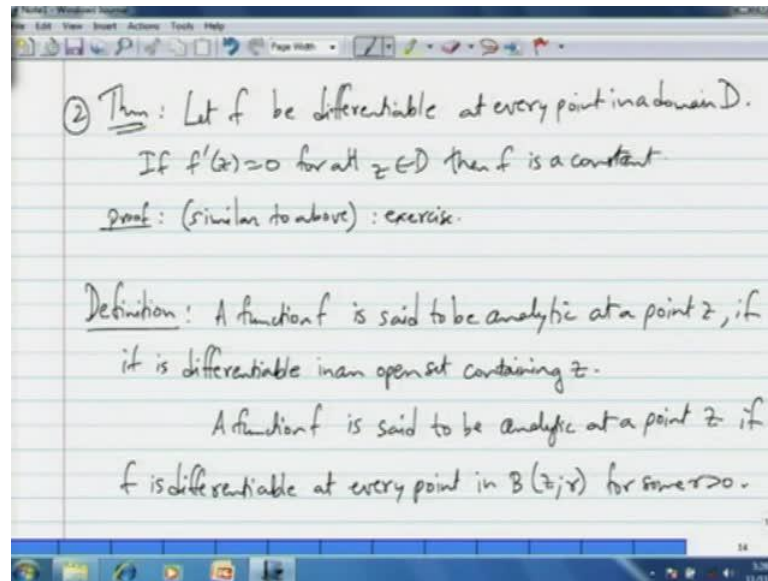 Note1 - Windows Journal
File Edit View Insert Actions Tools Help
Page Width
② Thm: Let f be differentiable at every point in a domain D.
If f'(z)=0 for all z∈D then f is a constant.
proof: (similar to above) : exercise.
Definition: A function f is said to be analytic at a point z, if
it is differentiable in an open set containing z.
A function f is said to be analytic at a point z if
f is differentiable at every point in B(z;r) for some r>0.
14